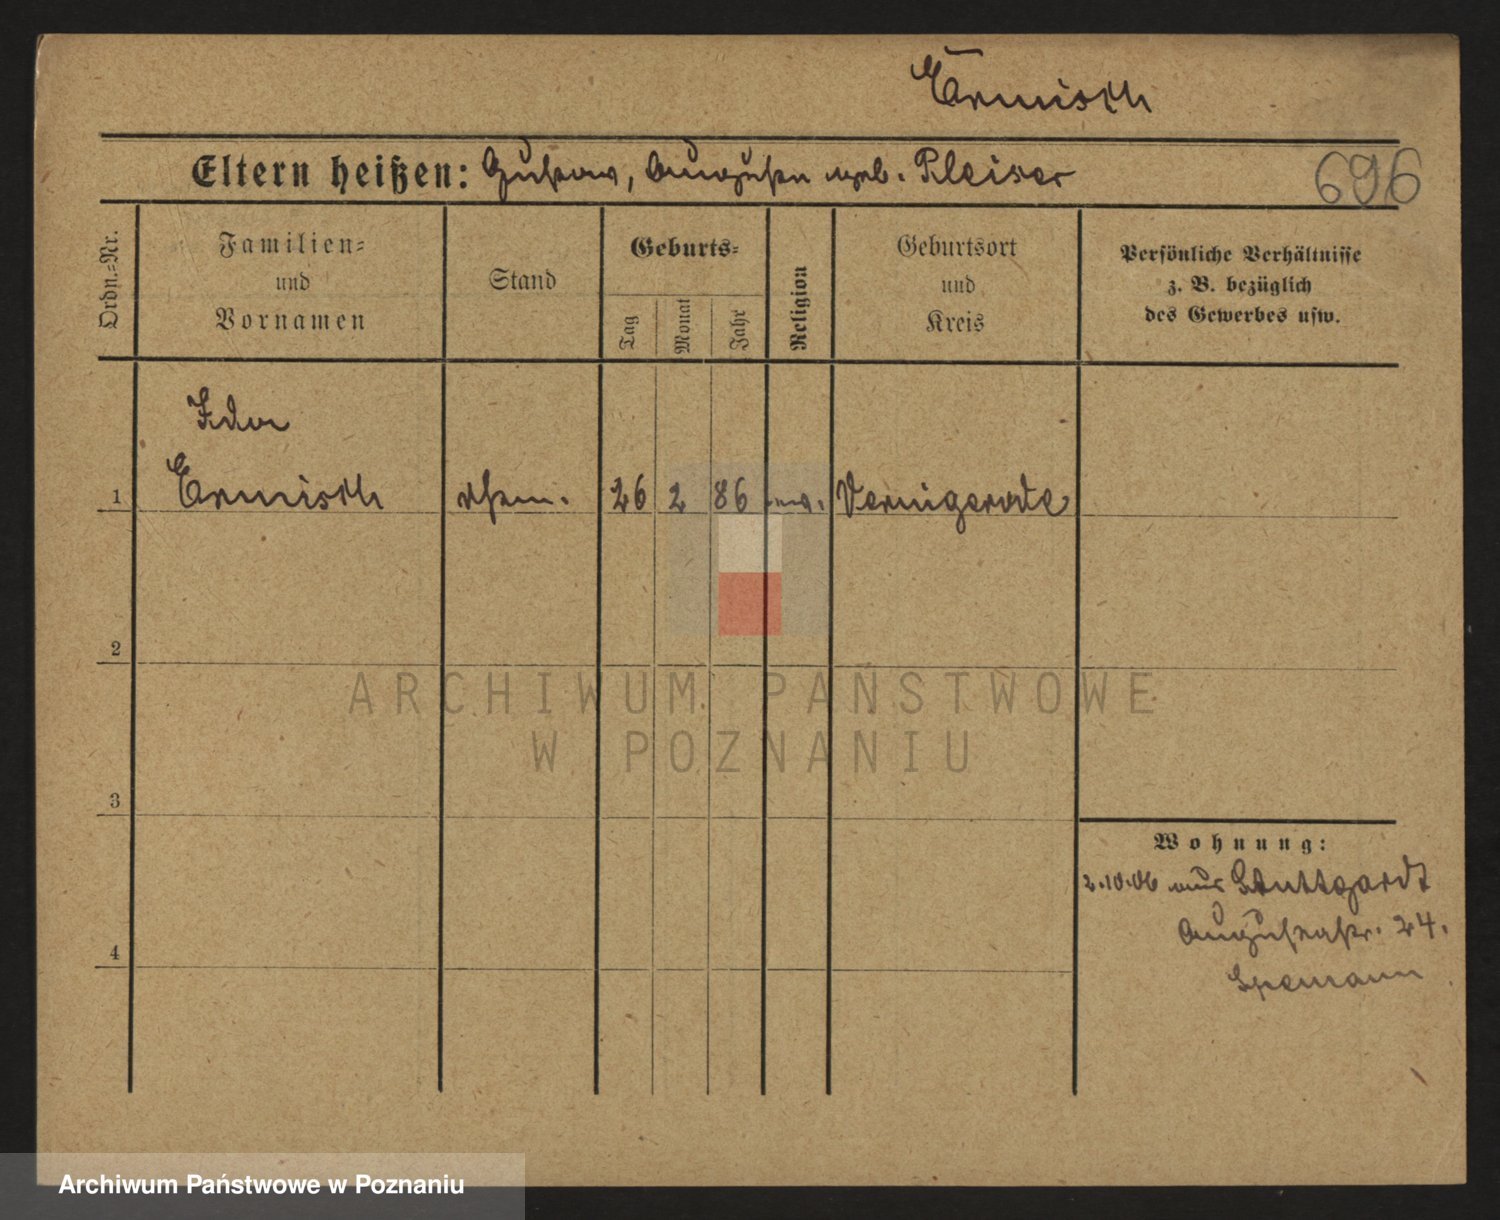 Ermisch
Eltern heißen: Gustav, Auguste geb. Pleiser
696
Ordn.-Nr.
Familien-
und
Vornamen
Stand
Geburts-
Tag
Monat
Jahr
Religion
Geburtsort
und
Kreis
Persönliche Verhältnisse
z. B. bezüglich
des Gewerbes usw.
Ida
1 Ermisch 26 2 86 ev. Wernigerode
2
3
4
Wohnung:
2.10.06 aus Stuttgardt
Augustastr. 24.
Spemann
ARCHIWUM PAŃSTWOWE
W POZNANIU
Archiwum Państwowe w Poznaniu